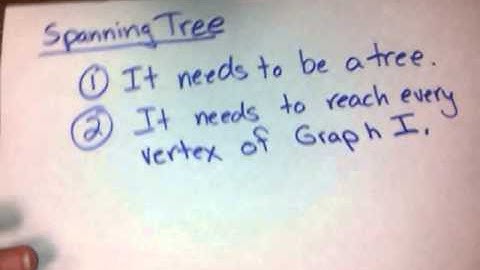 Spanning Tree
① It needs to be a tree.
② It needs to reach every
vertex of Graph I.